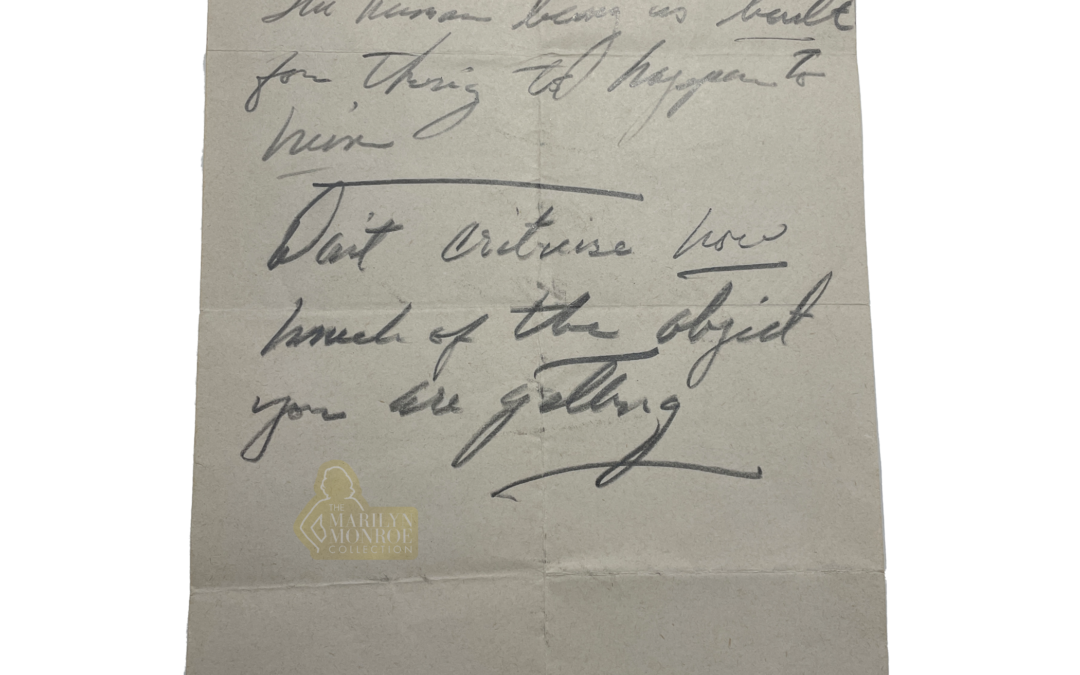 The human being is built
for things to happen to
him
Don't criticise how
much of the object
you are getting
THE
MARILYN
MONROE
COLLECTION